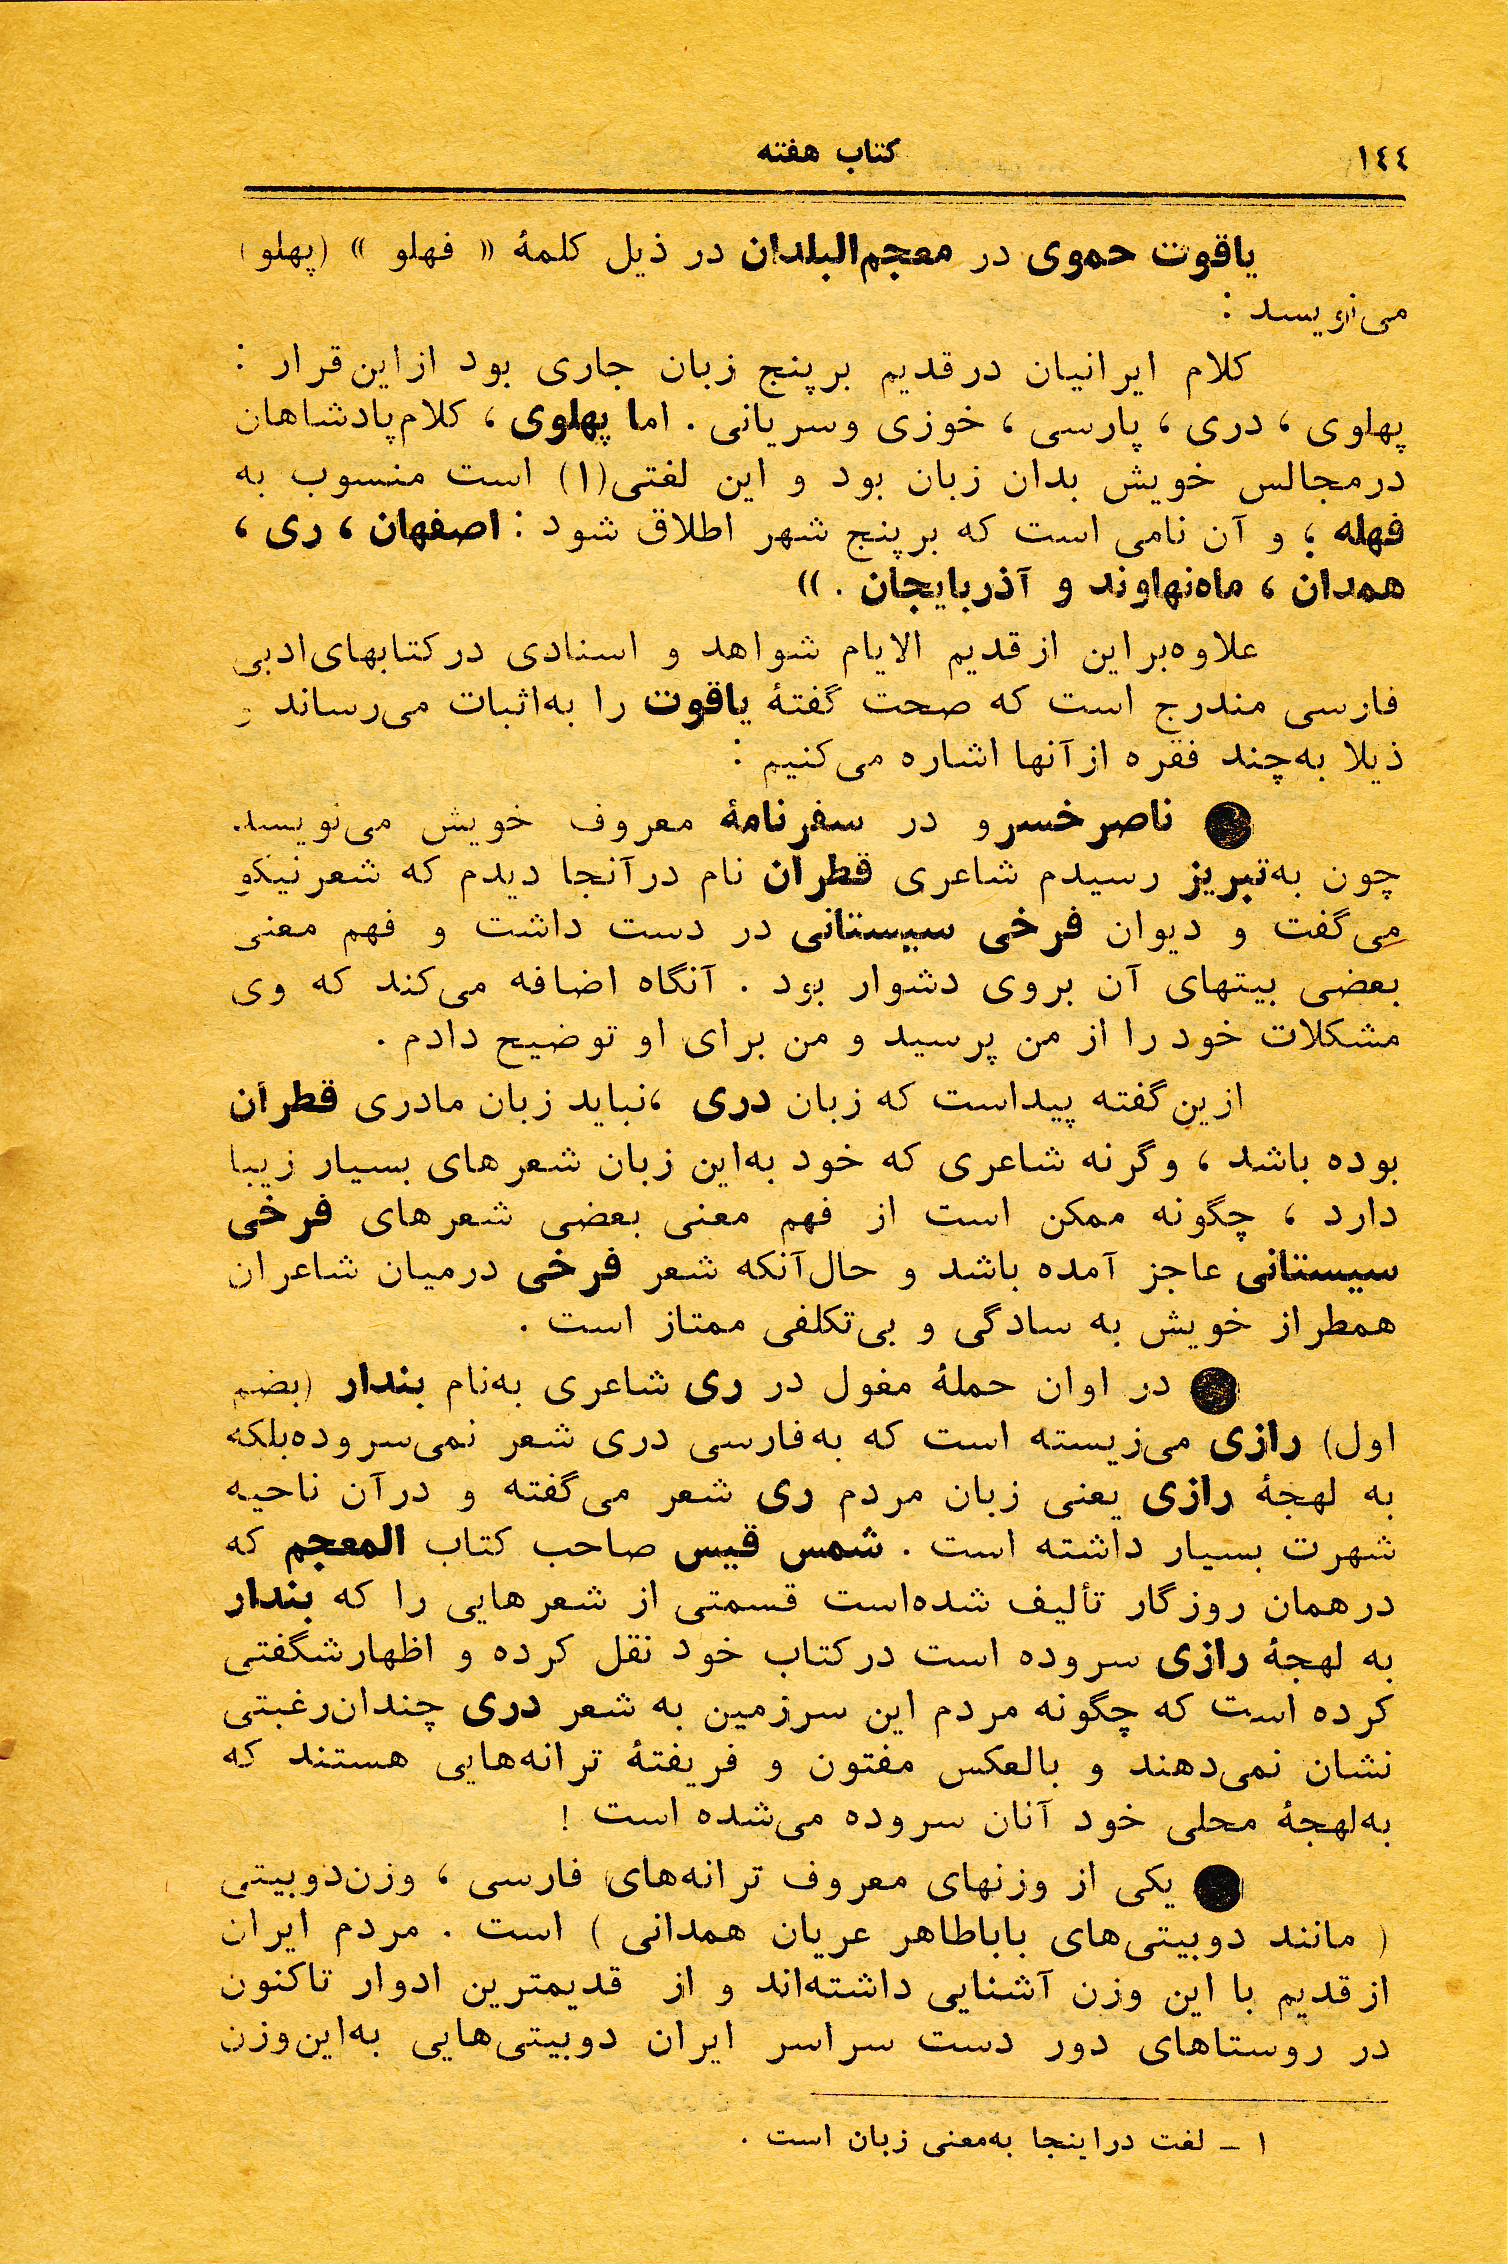 ۱٤٤
کتاب هفته
یاقوت حموی در معجم‌البلدان در ذیل کلمهٔ « فهلو » (پهلو)
می‌نویسد :
کلام ایرانیان درقدیم برپنج زبان جاری بود ازاین‌قرار :
پهلوی ، دری ، پارسی ، خوزی وسریانی . اما پهلوی ، کلام‌پادشاهان
درمجالس خویش بدان زبان بود و این لغتی(۱) است منسوب به
فهله ؛ و آن نامی است که برپنج شهر اطلاق شود : اصفهان ، ری ،
همدان ، ماه‌نهاوند و آذربایجان . »
علاوه‌براین ازقدیم الایام شواهد و اسنادی درکتابهای‌ادبی
فارسی مندرج است که صحت گفتهٔ یاقوت را به‌اثبات می‌رساند و
ذیلا به‌چند فقره ازآنها اشاره می‌کنیم :
● ناصرخسرو در سفرنامهٔ معروف خویش می‌نویسد
چون به‌تبریز رسیدم شاعری قطران نام درآنجا دیدم که شعرنیکو
می‌گفت و دیوان فرخی سیستانی در دست داشت و فهم معنی
بعضی بیتهای آن بروی دشوار بود . آنگاه اضافه می‌کند که وی
مشکلات خود را از من پرسید و من برای او توضیح دادم .
ازین‌گفته پیداست که زبان دری ،نباید زبان مادری قطران
بوده باشد ، وگرنه شاعری که خود به‌این زبان شعرهای بسیار زیبا
دارد ، چگونه ممکن است از فهم معنی بعضی شعرهای فرخی
سیستانی عاجز آمده باشد و حال‌آنکه شعر فرخی درمیان شاعران
همطراز خویش به سادگی و بی‌تکلفی ممتاز است .
● در اوان حملهٔ مغول در ری شاعری به‌نام بندار (بضم
اول) رازی می‌زیسته است که به‌فارسی دری شعر نمی‌سروده‌بلکه
به لهجهٔ رازی یعنی زبان مردم ری شعر می‌گفته و درآن ناحیه
شهرت بسیار داشته است . شمس قیس صاحب کتاب المعجم که
درهمان روزگار تألیف شده‌است قسمتی از شعرهایی را که بندار
به لهجهٔ رازی سروده است درکتاب خود نقل کرده و اظهارشگفتی
کرده است که چگونه مردم این سرزمین به شعر دری چندان‌رغبتی
نشان نمی‌دهند و بالعکس مفتون و فریفتهٔ ترانه‌هایی هستند که
به‌لهجهٔ محلی خود آنان سروده می‌شده است !
● یکی از وزنهای معروف ترانه‌های فارسی ، وزن‌دوبیتی
( مانند دوبیتی‌های باباطاهر عریان همدانی ) است . مردم ایران
ازقدیم با این وزن آشنایی داشته‌اند و از قدیمترین ادوار تاکنون
در روستاهای دور دست سراسر ایران دوبیتی‌هایی به‌این‌وزن
۱ – لغت دراینجا به‌معنی زبان است .